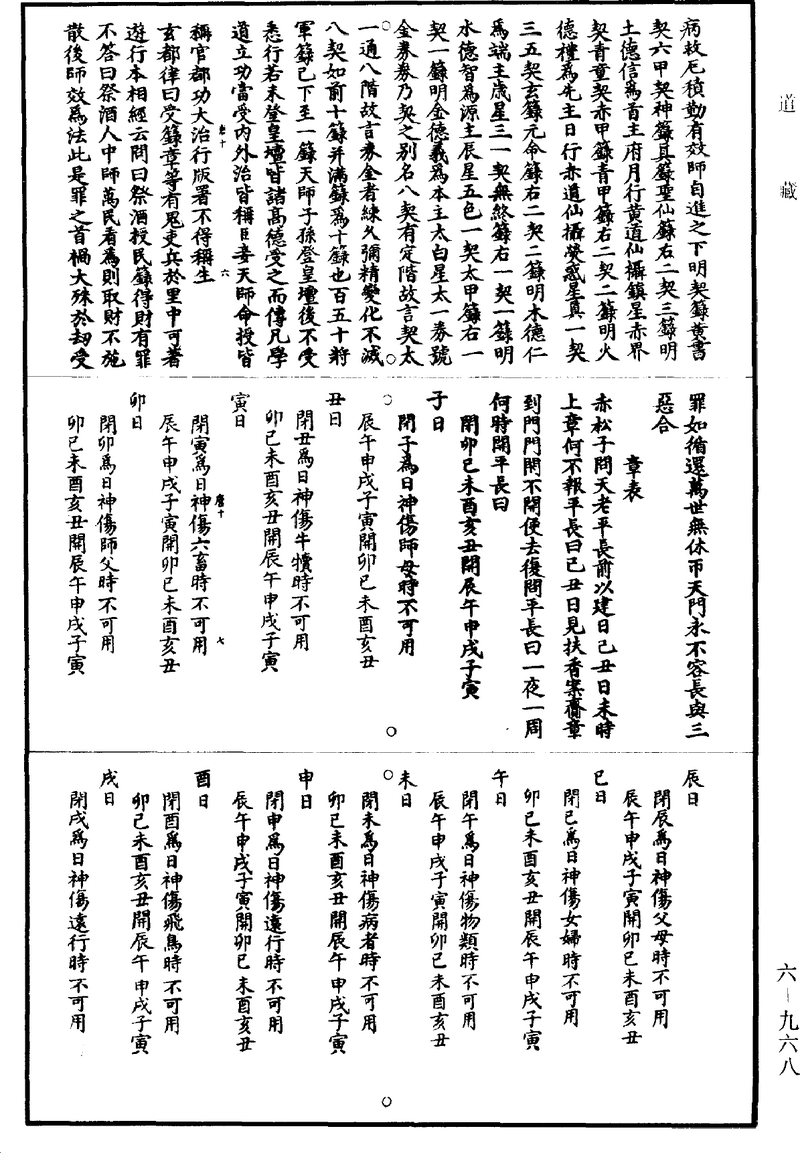 道藏
病救厄積勤有效師自進之下明契籙黃書
契六甲契神籙真籙聖仙籙右二契三籙明
土德信爲首主府月行黃道仙攝鎮星赤界
契青童契赤甲籙青甲籙右二契二籙明火
德禮爲先主日行赤道仙攝熒惑星真一契
三五契玄籙元命籙右二契二籙明木德仁
爲端主歲星三一契無終籙右一契一籙明
水德智爲源主辰星五色一契太甲籙右一
契一籙明金德義爲本主太白星太一券號
金券券乃契之別名八契有定階故言契太
一通八階故言券金者練久彌精變化不滅
八契如前十籙并滿籙爲十籙也百五十將
軍籙已下至一籙天師子孫登皇壇後不受
悉行若未登皇壇皆諸高德受之而傳凡學
道立功當受內外治皆稱臣妾天師命授皆
唐十 六
稱官都功大治行版署不得稱生
玄都律曰受籙章等有鬼吏兵於里中可著
遊行本相經云問曰祭酒授民籙得財有罪
不答曰祭酒人中師萬民看爲則取財不施
散後師效爲法此是罪之首禍大殊於劫受
罪如循還萬世無休帀天門永不容長與三
惡合
章表
赤松子問天老平長前以建日己丑日未時
上章何不報平長曰己丑日見扶香案齎章
到門門閇不開便去復問平長曰一夜一周
何時開平長曰
閇卯巳未酉亥丑開辰午申戌子寅
子日
閇子爲日神傷師母時不可用
辰午申戌子寅開卯巳未酉亥丑
丑日
閇丑爲日神傷牛犢時不可用
卯巳未酉亥丑開辰午申戌子寅
寅日
閇寅爲日神傷六畜時不可用
唐十 七
辰午申戌子寅開卯巳未酉亥丑
卯日
閇卯爲日神傷師父時不可用
卯巳未酉亥丑開辰午申戌子寅
辰日
閇辰爲日神傷父母時不可用
辰午申戌子寅開卯巳未酉亥丑
巳日
閇巳爲日神傷女婦時不可用
卯巳未酉亥丑開辰午申戌子寅
午日
閇午爲日神傷物類時不可用
辰午申戌子寅開卯巳未酉亥丑
未日
閇未爲日神傷病者時不可用
卯巳未酉亥丑開辰午申戌子寅
申日
閇申爲日神傷遠行時不可用
辰午申戌子寅開卯巳未酉亥丑
酉日
閇酉爲日神傷飛鳥時不可用
卯巳未酉亥丑開辰午申戌子寅
戌日
閇戌爲日神傷遠行時不可用
六－九六八